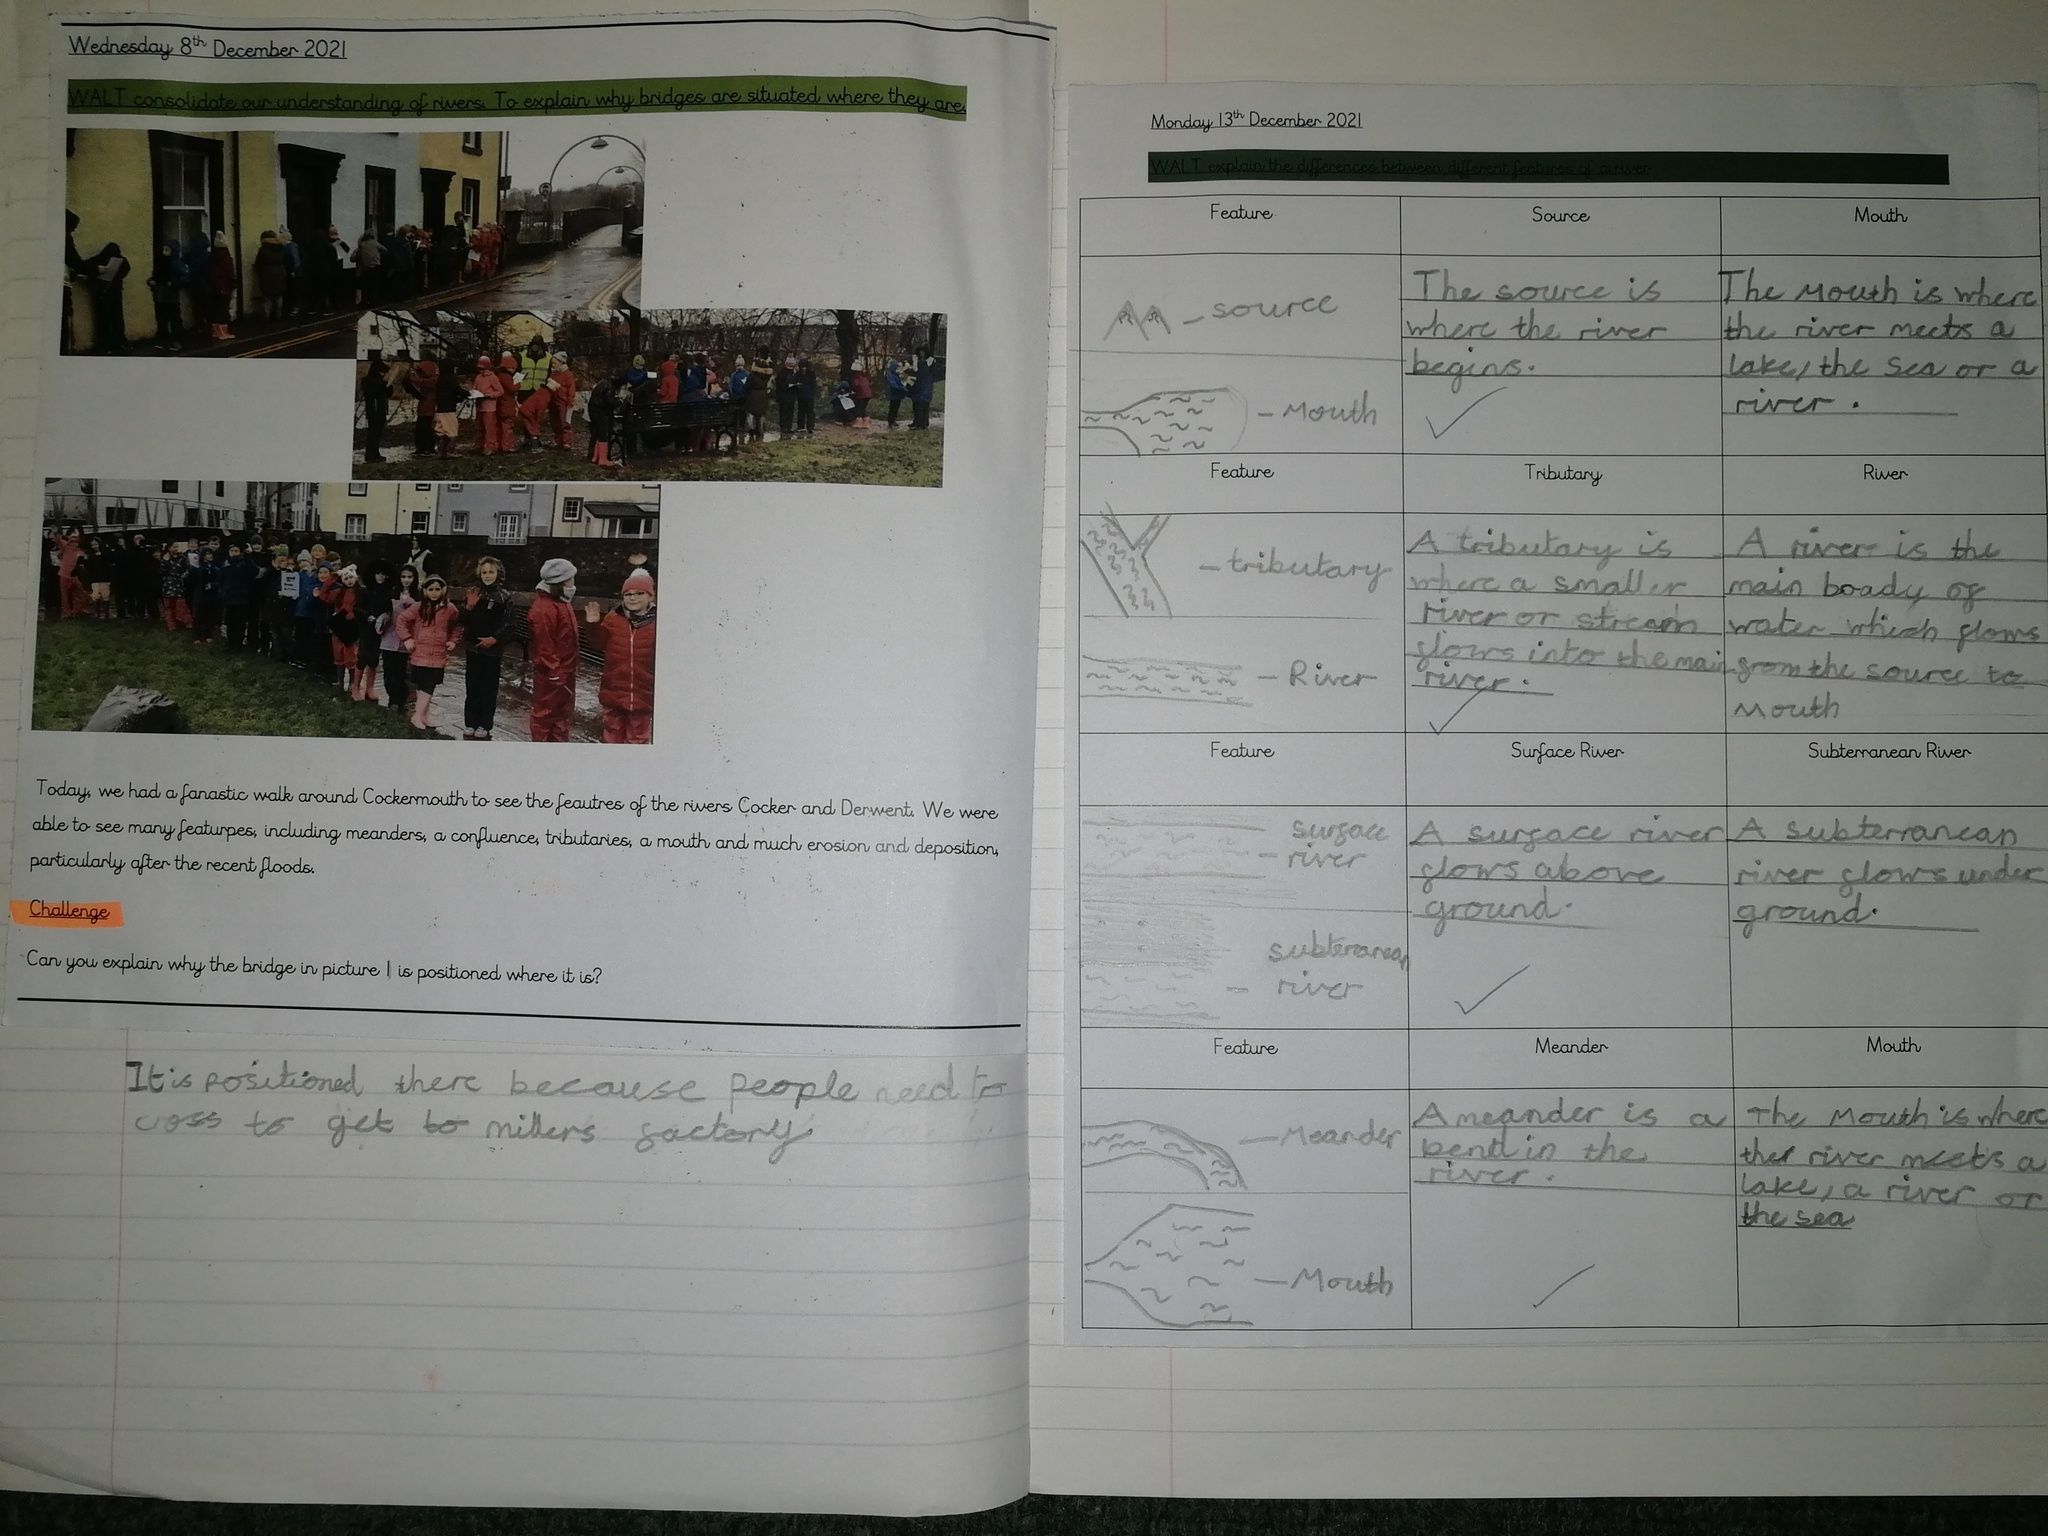 Wednesday 8th December 2021
WALT consolidate our understanding of rivers. To explain why bridges are situated where they are.
Today, we had a fanastic walk around Cockermouth to see the feautres of the rivers Cocker and Derwent. We were
able to see many featurpes, including meanders, a confluence, tributaries, a mouth and much erosion and deposition,
particularly after the recent floods.
Challenge
Can you explain why the bridge in picture 1 is positioned where it is?
It is positioned there because people need to
coss to get to millers factory
Monday 13th December 2021
WALT explain the differences between different features of a river
Feature
Source
Mouth
source
Mouth
The source is
where the river
begins.
The Mouth is where
the river meets a
lake, the sea or a
river.
Feature
Tributary
River
tributary
River
A tributary is
where a smaller
river or stream
flows into the main
river.
A river is the
main boady of
water which flows
from the source to
Mouth
Feature
Surface River
Subterranean River
surface
river
subterranean
river
A surface river
flows above
ground.
A subterranean
river flows under
ground.
Feature
Meander
Mouth
Meander
Mouth
A meander is a
bend in the
river.
The Mouth is where
the river meets a
lake, a river or
the sea